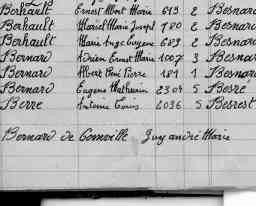 Berhault Ernest Mort Marie 613 Besnard
Berhault Marcel Marie Joseph 780 2 Besnard
Berhault Marie Ange Eugène 689 2 Besnard
Bernard Adrien Ernest Marie 1007 3 Besnard
Bernard Albert René Pierre 181 1 Besnard
Bernard Eugène Mathurin 2304 5 Besre
Berre Antoine Louis 2036 5 Besrest
Bernard de Gonville Guy André Marie